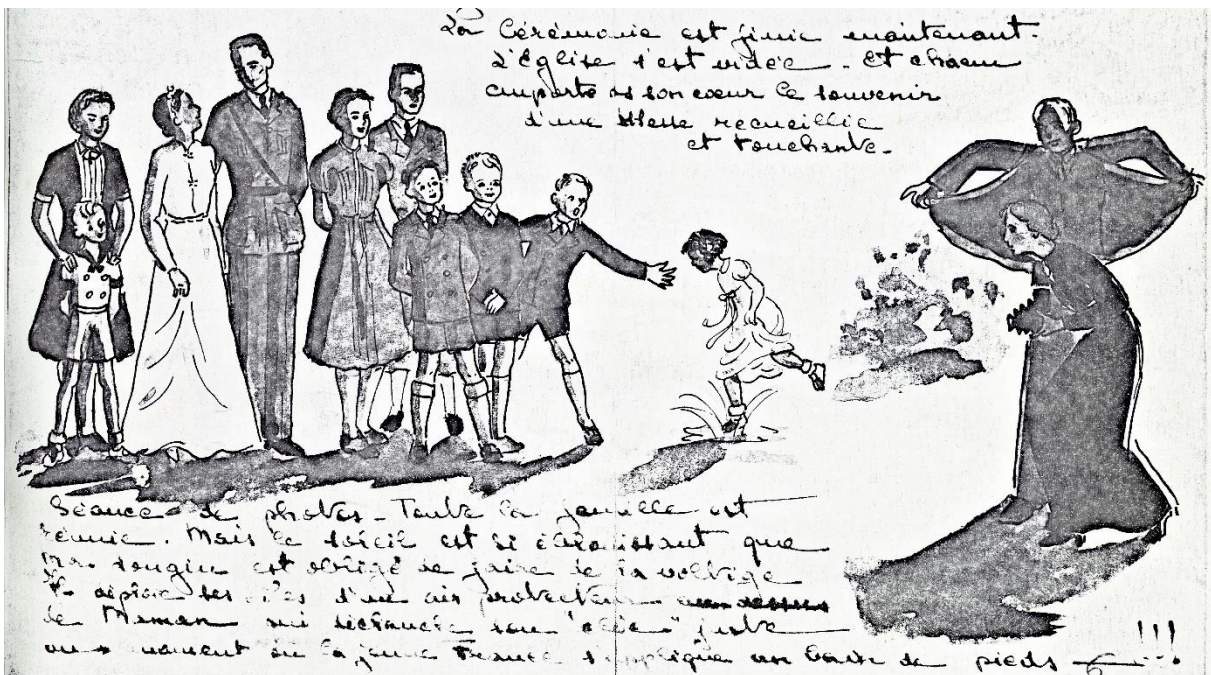 La Cérémonie est finie maintenant.
L'Église s'est vidée. Et chacun
emporte ds son cœur le souvenir
d'une Messe recueillie
et touchante.
Séance de photos. Toute la famille est
réunie. Mais le soleil est si éblouissant que
Mr. est obligé de faire de la voltige
Il déploie ses ailes d'un air protecteur
de Maman qui déclanche son "clic" juste
au moment où la jeune France s'applique un bain de pieds !!!